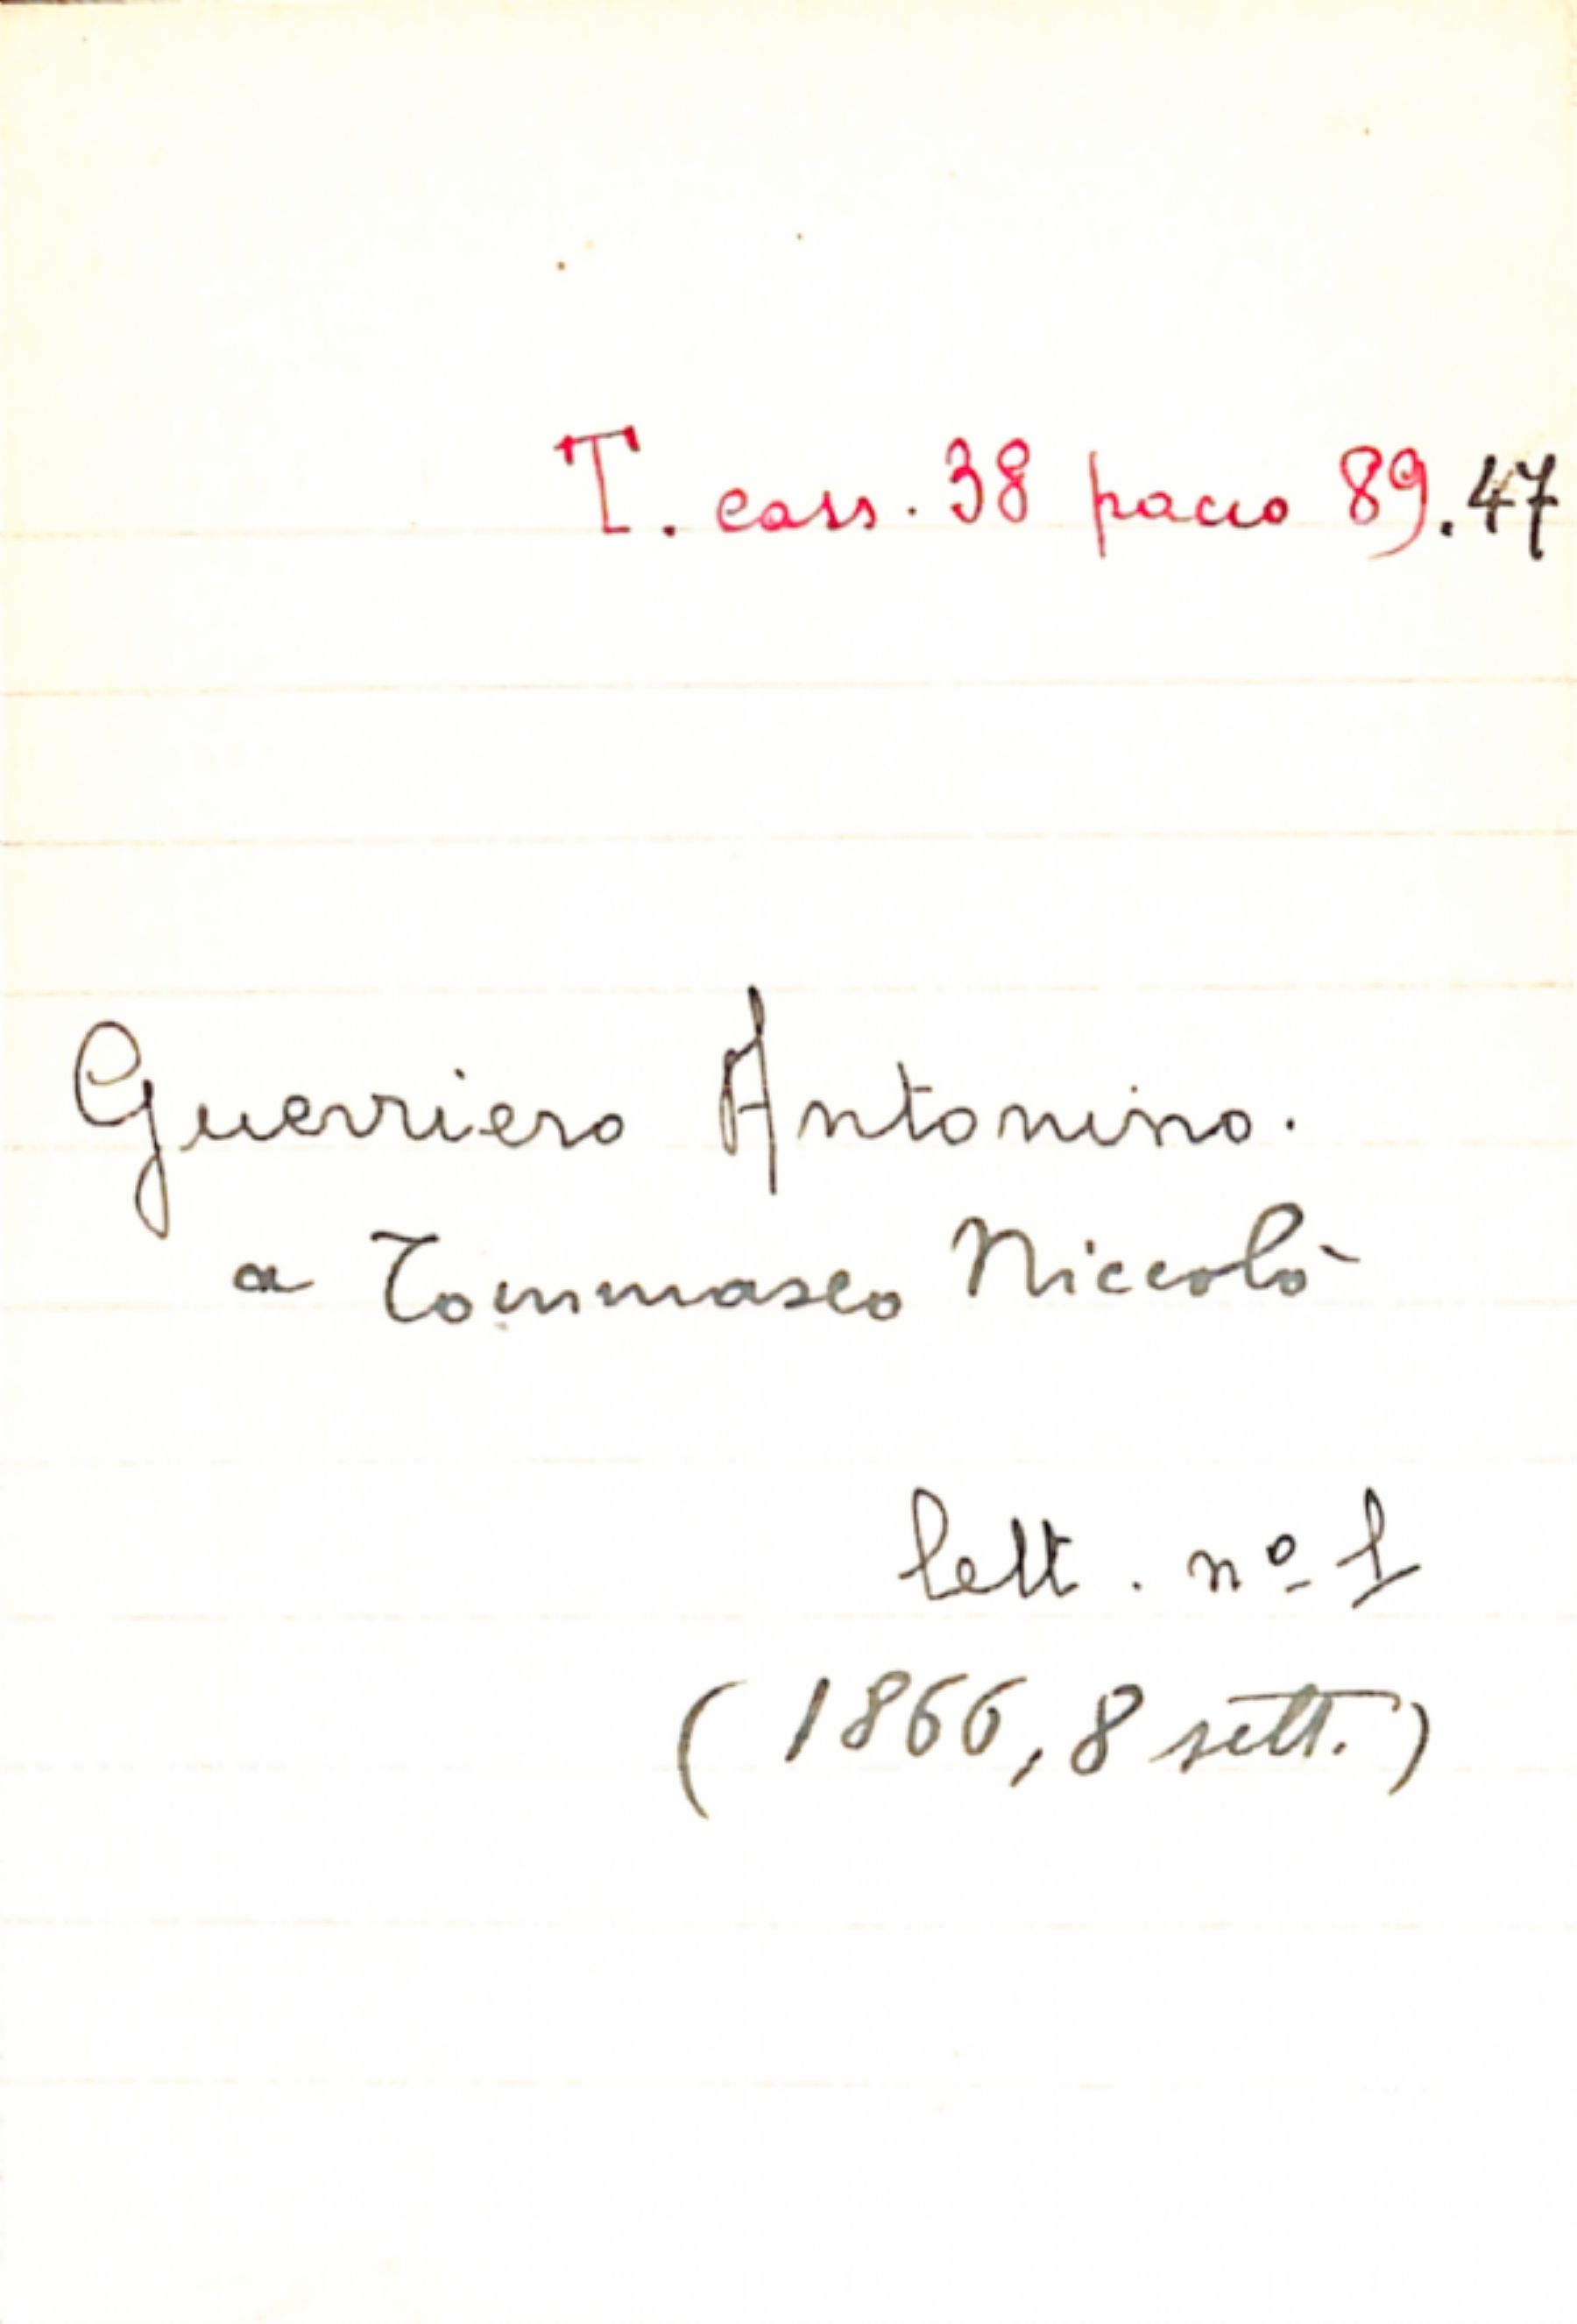 T. cass. 38 pacco 89.47
Guerriero Antonino.
a Tommaseo Niccolò
lett. nº 1
(1866, 8 sett.)